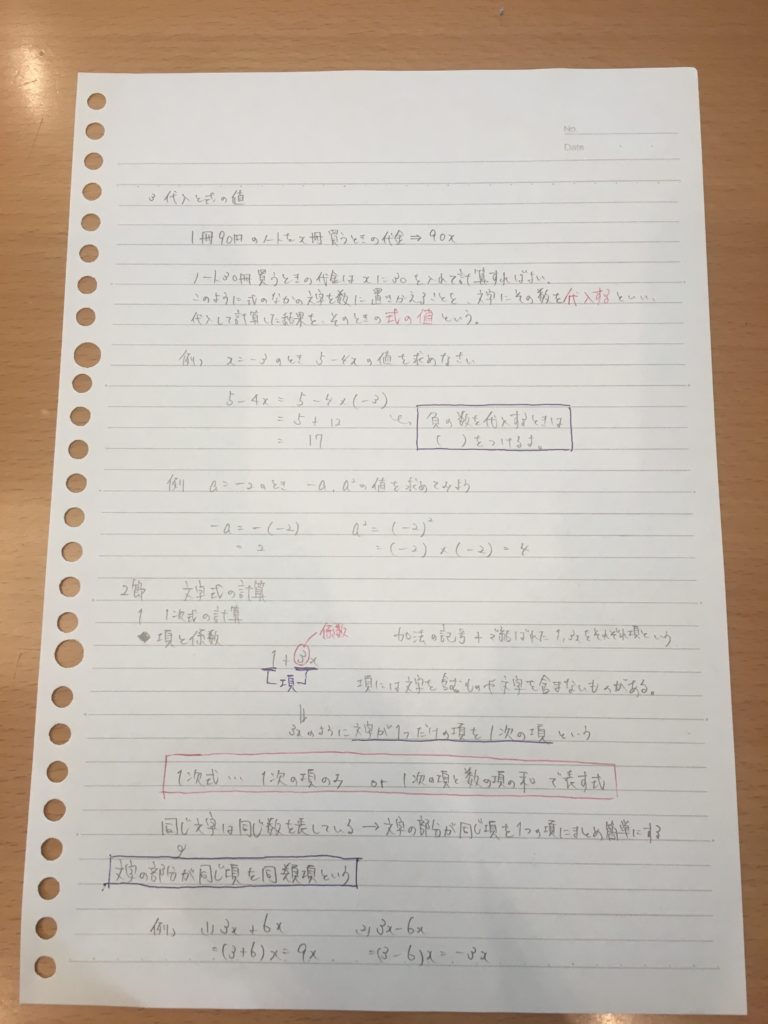 No.
Date
3 代入と式の値
1冊90円のノートをx冊買うときの代金⇒90x
ノート30冊買うときの代金はxに30を入れて計算すればよい。
このように式のなかの文字を数に置きかえることを、文字にその数を代入するといい、
代入して計算した結果を、そのときの式の値という。
例) x=-3のとき 5-4xの値を求めなさい
5-4x = 5-4×(-3)
= 5+12
= 17
負の数を代入するときは
( )をつけるよ。
例 a=-2のとき -a、a²の値を求めてみよう
-a=-(-2) a²=(-2)²
= 2 =(-2)×(-2)=4
2節 文字式の計算
1 1次式の計算
◆項と係数
係数
加法の記号+で結ばれた1,3xをそれぞれ項という
1+3x
項
項には文字を含むものや文字を含まないものがある。
3xのように文字が1つだけの項を1次の項という
1次式… 1次の項のみ or 1次の項と数の項の和で表す式
同じ文字は同じ数を表している→文字の部分が同じ項を1つの項にまとめ簡単にする
文字の部分が同じ項を同類項という
例) (1)3x+6x (2)3x-6x
=(3+6)x=9x =(3-6)x=-3x